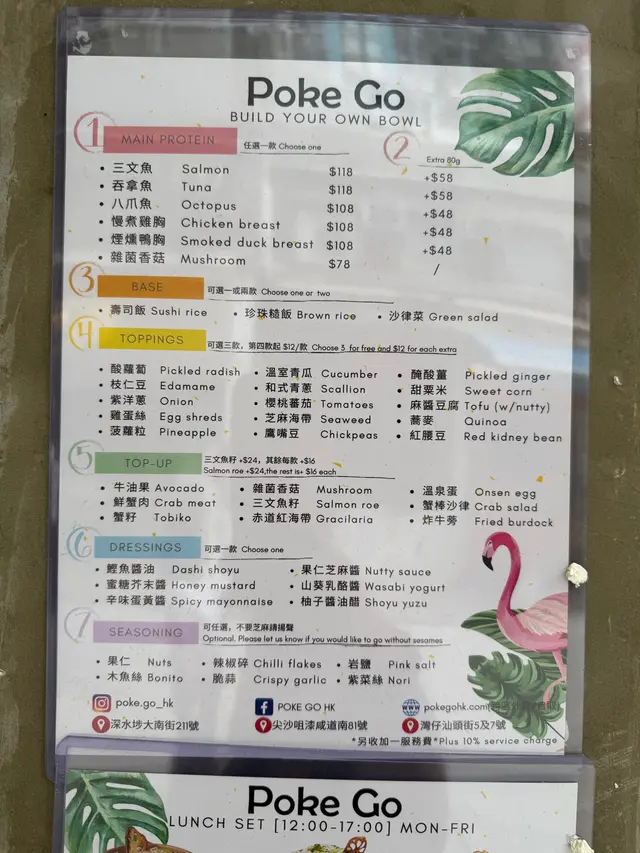 Poke Go
BUILD YOUR OWN BOWL
1 MAIN PROTEIN 任選一款 Choose one 2 Extra 80g
• 三文魚 Salmon $118 +$58
• 吞拿魚 Tuna $118 +$58
• 八爪魚 Octopus $108 +$48
• 慢煮雞胸 Chicken breast $108 +$48
• 煙燻鴨胸 Smoked duck breast $108 +$48
• 雜菌香菇 Mushroom $78 /
3 BASE 可選一或兩款 Choose one or two
• 壽司飯 Sushi rice • 珍珠糙飯 Brown rice • 沙律菜 Green salad
4 TOPPINGS 可選三款，第四款起 $12/款 Choose 3 for free and $12 for each extra
• 酸蘿蔔 Pickled radish • 溫室青瓜 Cucumber • 醃酸薑 Pickled ginger
• 枝仁豆 Edamame • 和式青蔥 Scallion • 甜粟米 Sweet corn
• 紫洋蔥 Onion • 櫻桃蕃茄 Tomatoes • 麻醬豆腐 Tofu (w/nutty)
• 雞蛋絲 Egg shreds • 芝麻海帶 Seaweed • 蕎麥 Quinoa
• 菠蘿粒 Pineapple • 鷹嘴豆 Chickpeas • 紅腰豆 Red kidney bean
5 TOP-UP 三文魚籽 +$24，其餘每款 +$16
Salmon roe +$24,the rest is+ $16 each
• 牛油果 Avocado • 雜菌香菇 Mushroom • 溫泉蛋 Onsen egg
• 鮮蟹肉 Crab meat • 三文魚籽 Salmon roe • 蟹棒沙律 Crab salad
• 蟹籽 Tobiko • 赤道紅海帶 Gracilaria • 炸牛蒡 Fried burdock
6 DRESSINGS 可選一款 Choose one
• 鰹魚醬油 Dashi shoyu • 果仁芝麻醬 Nutty sauce
• 蜜糖芥末醬 Honey mustard • 山葵乳酪醬 Wasabi yogurt
• 辛味蛋黃醬 Spicy mayonnaise • 柚子醬油醋 Shoyu yuzu
7 SEASONING 可任選，不要芝麻請揚聲
Optional. Please let us know if you would like to go without sesames
• 果仁 Nuts • 辣椒碎 Chilli flakes • 岩鹽 Pink salt
• 木魚絲 Bonito • 脆蒜 Crispy garlic • 紫菜絲 Nori
poke.go_hk POKE GO HK pokegohk.com
深水埗大南街211號 尖沙咀漆咸道南81號 灣仔汕頭街5及7號
*另收加一服務費*Plus 10% service charge
Poke Go
LUNCH SET [12:00-17:00] MON-FRI